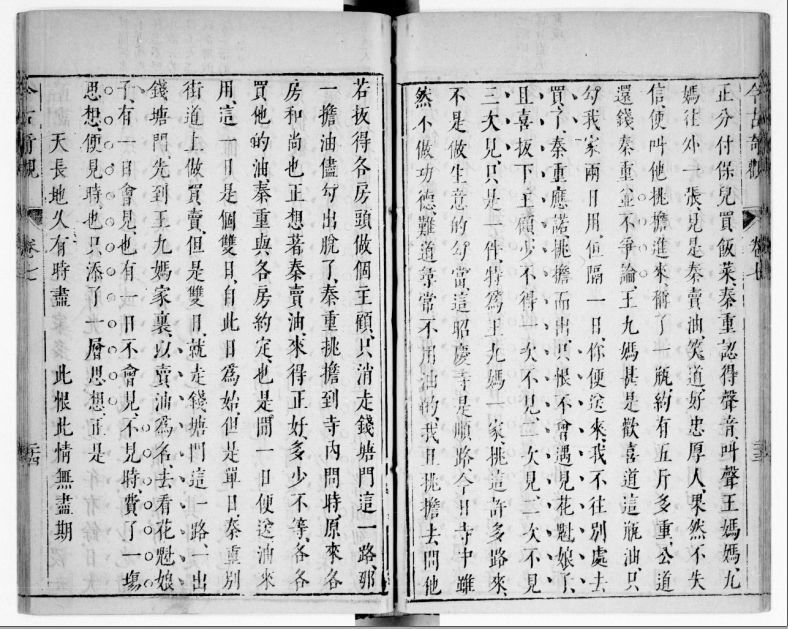 今古奇觀 卷七
正分付保兒買飯菜秦重認得聲音叫聲王媽媽九
媽往外一張見是秦賣油笑道好忠厚人果然不失
信便叫他挑擔進來稱了一瓶約有五斤多重公道
還錢秦重並不爭論王九媽甚是歡喜道這瓶油只
勾我家兩日用但隔一日你便送來我不往別處去
買了秦重應諾挑擔而出只恨不曾遇見花魁娘子
且喜扳下主顧少不得一次不見二次見二次不見
三次見只是一件特為王九媽一家挑這許多路來
不是做生意的勾當這昭慶寺是順路今日寺中雖
然不做功德難道尋常不用油的我且挑擔去問他
若扳得各房頭做個主顧只消走錢塘門這一路那
一擔油儘勾出脫了秦重挑擔到寺內問時原來各
房和尚也正想著秦賣油來得正好多少不等各各
買他的油秦重與各房約定也是間一日便送油來
用這一日是個雙日自此日為始但是單日秦重別
街道上做買賣但是雙日就走錢塘門這一路一出
錢塘門先到王九媽家裏以賣油為名去看花魁娘
子有一日會見也有一日不會見不見時費了一場
思想便見時也只添了一層思想正是
天長地久有時盡 此恨此情無盡期
今古奇觀 卷七